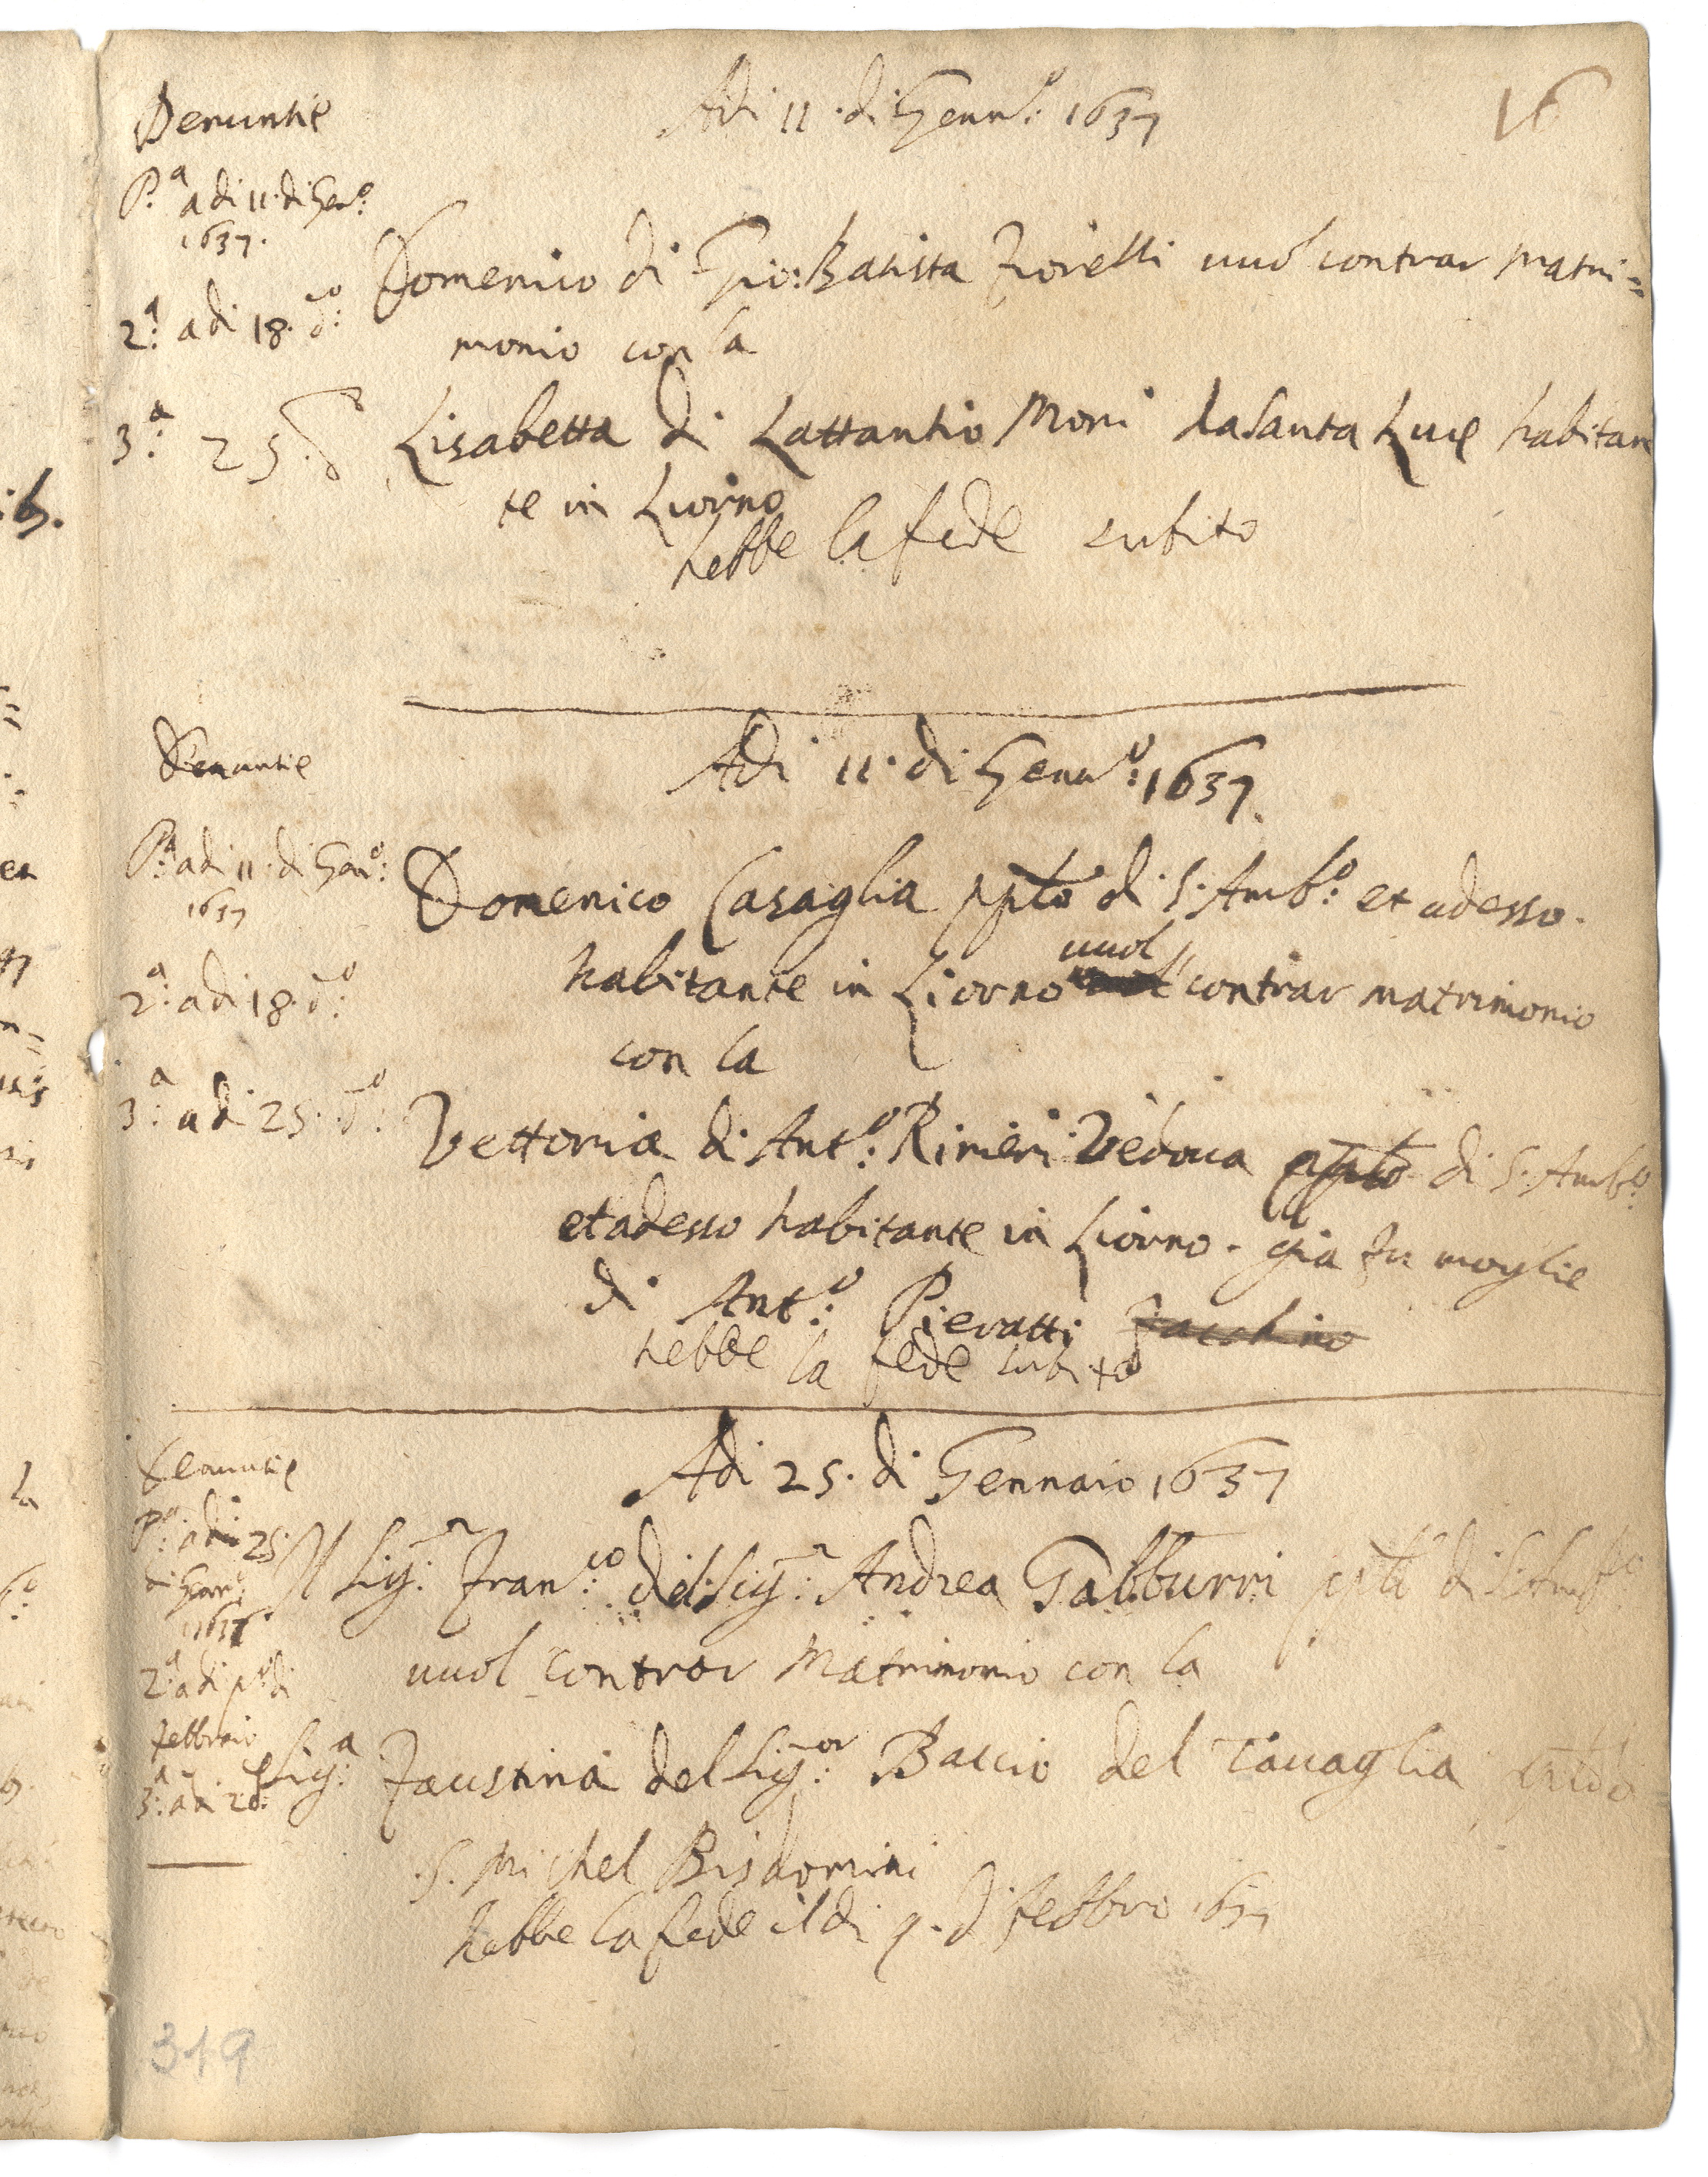 Adi 11. di Genn.o 1637
16
Denuntie
P.a adi 11. di Gen.o
1637.
2.a adi 18. d.o
3.a 25. d
Domenico di Gio: Batista Fiorelli vuol contrar matri=
monio con la
Lisabetta di Lattantio Moni da Santa Luce habitan
te in Liorno
hebbe la fede subito
Denuntie
Adi 11. di Genn.o: 1637.
P.a adi 11. di Gen.o:
1637
2.a: adi 18. d.o:
3.a: adi 25. d.o:
Domenico Casaglia pplo di S. Amb.o: et adesso.
habitante in Liorno vuol contrar matrimonio
con la
Vettoria di Ant.o: Rinieri Vedoua pplo di S. Amb.o:
et adesso habitante in Liorno. gia fu moglie
di Ant.o: Pieratti facchino
hebbe la fede subito
Denuntie
Adi 25. di Gennaio 1637
P.a: adi 25.
di Gen.o:
1637
2.a adi p.o di
febbraio
3.a: adi 2 d.o:
Il Sig.r: Fran.co del Sig.r: Andrea Gabburri pplo di S. Amb.o
vuol contrar Matrimonio con la
Sig.a: Faustina del Sig.or: Baccio del Tauaglia
S. Michel Bisdomini
hebbe la fede il di 9. di febbro 1637
319